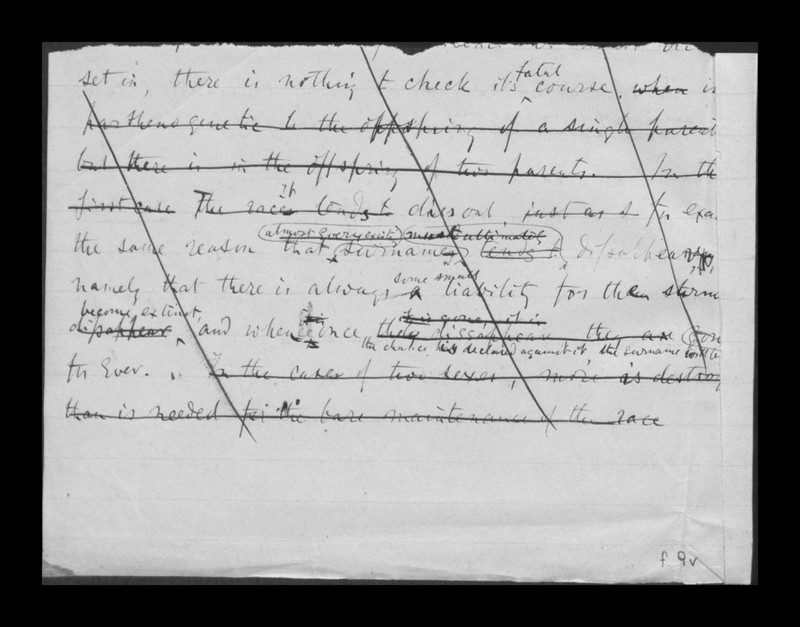 set in, there is nothing to check its fatal course, when in
parthenogenetic to the offspring of a single parent
but there is in the offspring of two parents. In the
first case The races tends to dies out, just as I for exa
almost every existing must ultimately
the same reason that surnames tends to disappear,
some small
namely that there is always a liability for them
become extinct
disappear and when once they disappear they are gone
the chance has declared against it the surname
for Ever. In the cases of two sexes, more is destroy
than is needed for the bare maintenance of the race
f 9v